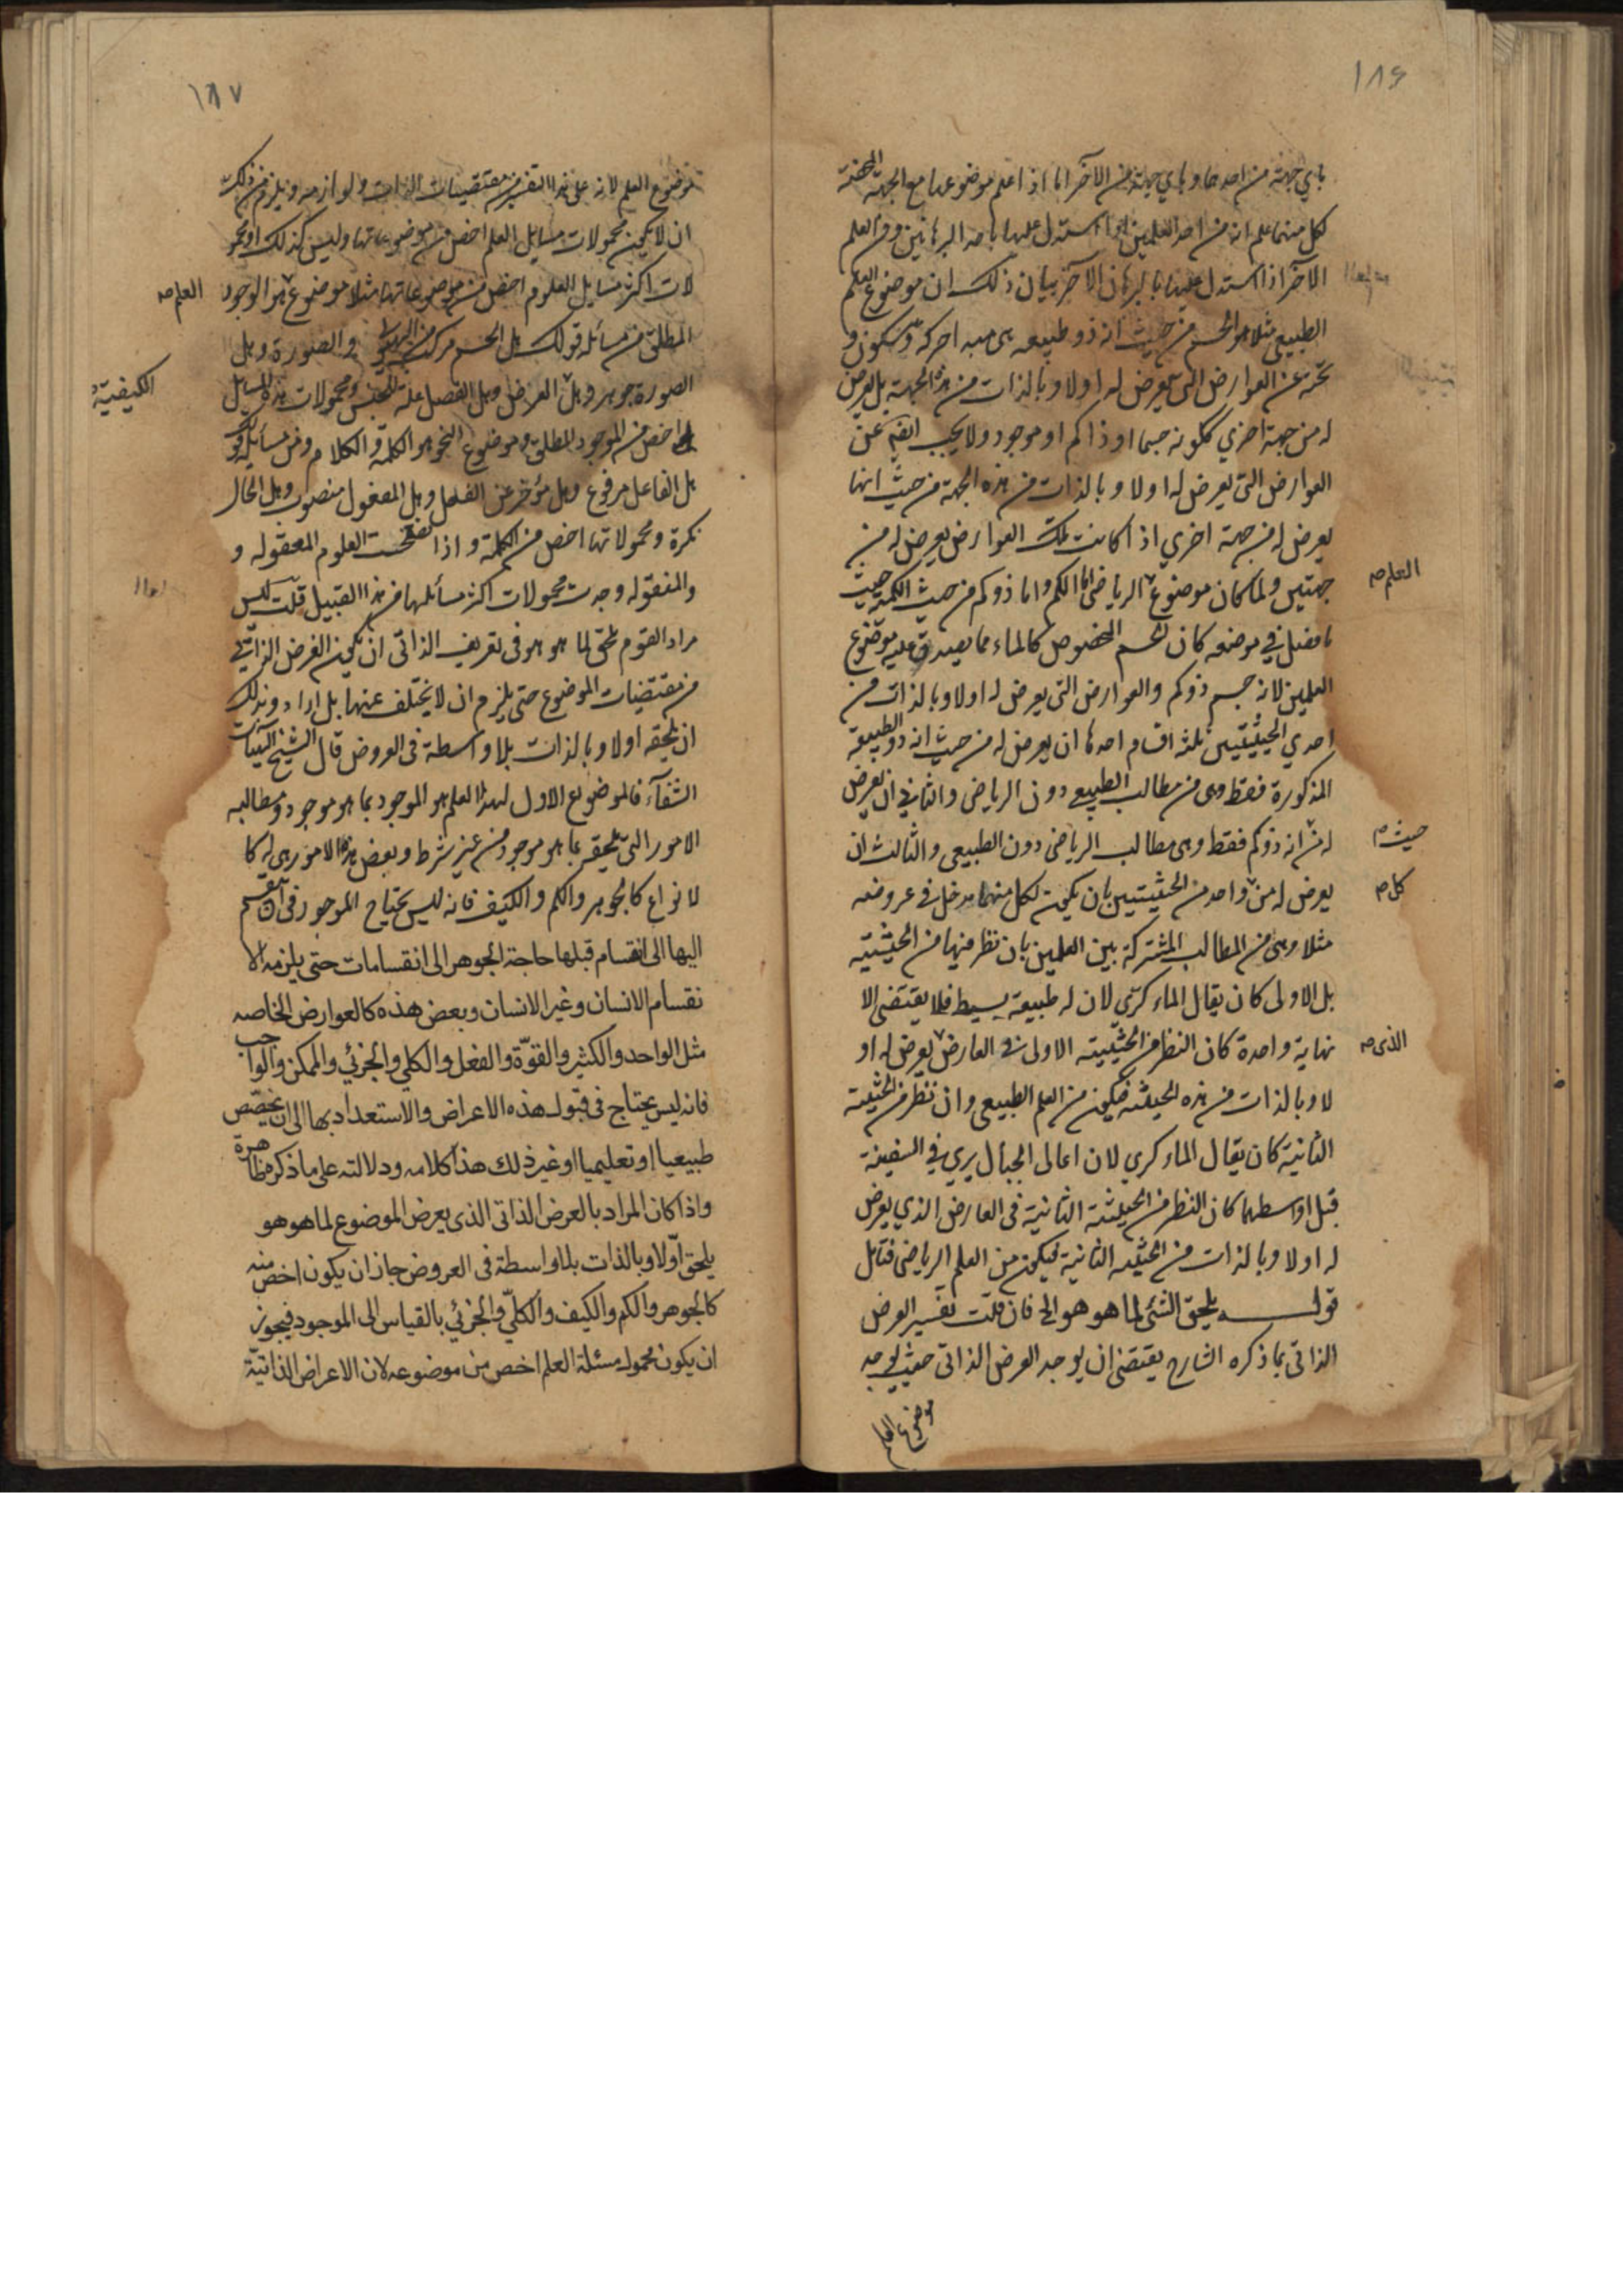 ١٨۶
باي جهة من احدهما وباي جهة من الآخر اما اذا علم موضوعهما مع الجهة المختصة
لكل منهما علم انه من احد العلمين اذا استدل عليها باحد البرهانين ومن العلم
الآخر اذا استدل عليها بالبرهان الآخر بيان ذلك ان موضوع العلم
الطبيعي مثلا هو الجسم من حيث انه ذو طبيعه هى مبدء حركه وسكون و
بحثه عن العوارض التى تعرض له اولا وبالذات من هذه الجهة بل يعرض
له من جهة اخري ككونه جسما او ذا كم او موجود ولا يجب ايضا عن
العوارض التى يعرض له اولا وبالذات من هذه الجهة من حيث انها
يعرض له من جهة اخري اذا كانت تلك العوارض يعرض له من
جهتين ولما كان موضوع الرياضى اما الكم واما ذو كم من حيث الكمية حيث
العلم صح
ما فصل في موضعه كان الجسم المخصوص كالماء مما يصدق عليه موضوع
العلمين لانه جسم ذو كم والعوارض التى يعرض له اولا وبالذات من
احدي الحيثيتين ثلثة اقسام احدها ان يعرض له من حيث انه ذو الطبيعة
المذكورة فقط وهى من مطالب الطبيعي دون الرياضى والثاني ان يعرض
له من انه ذو كم فقط وهى مطالب الرياضى دون الطبيعى والثالث ان
حيث صح
يعرض له من واحد من الحيثيتين بان يكون لكل منهما مدخل في عروضه
كل صح
مثلا وهى من المطالب المشتركة بين العلمين بان نظر فيها من الحيثية
بل الاولى كان يقال الماء كري لان له طبيعة بسيط فلا يقتضى الا
نهاية واحدة كان النظر من الحيثية الاولى في العارض يعرض له او
الذى صح
لا وبالذات من هذه الحيثية فيكون من العلم الطبيعى وان نظر من الحيثية
الثانية كان يقال الماء كري لان اعالى الجبال يري في السفينة
قبل اواسطها كان النظر من الحيثية الثانية فى العارض الذي يعرض
له اولا وبالذات من الحيثية الثانية فيكون من العلم الرياضى فتامل
قوله يلحق الشئ لما هو هو الخ فان قلت تفسير العرض
الذاتى بما ذكره الشارح يقتضى ان يوجد العرض الذاتى حيث يوجد
موضوع العلم
١٨٧
موضوع العلم لانه على هذا التفسير من مقتضيات الذات ولوازمه ويلزم من ذلك
ان لا يكون محمولات مسايل العلم اخص من موضوعاتها وليس كذلك او محمو
لات اكثر مسايل العلوم اخص من موضوعاتها مثلا موضوع هو الوجود
العلم صح
المطلق من مسائله قولك هل الجسم مركب من الهيولى والصورة وهل
الصورة جوهر وهل العرض وهل الفصل علة للجنس ومحمولات هذه المسايل
الكيفية
اخص من الموجود المطلق وموضوع النحو هو الكلمة والكلام ومن مسايله
هل الفاعل مرفوع وهل مؤخر عن الفعل وهل المفعول منصوب وهل الحال
نكرة ومحمولاتها اخص من الكلمة واذا تصفحت العلوم المعقوله و
والمنقوله وجدت محمولات اكثر مسائلها من هذا القبيل قلت ليس
مراد القوم بلحق لما هو هو فى تعريف الذاتى ان يكون العرض الذاتى
من مقتضيات الموضوع حتى يلزم ان لا يختلف عنها بل ارادوا بذلك
ان يلحقه اولا وبالذات بلا واسطة فى العروض قال الشيخ الهيات
الشفآء فالموضوع الاول لهذا العلم هو الموجود بما هو موجود ومطالبه
الامور التى يلحقه بما هو موجود من غير شرط وبعض هذه الامور هى له كا
لانواع كالجوهر والكم والكيف فانه ليس يحتاج الموجود فى ان ينقسم
اليها الى انقسام قبلها حاجة الجوهر الى انقسامات حتى يلزمه الا
نقسام الانسان وغير الانسان وبعض هذه كالعوارض الخاصه
مثل الواحد والكثير والقوّة والفعل والكلي والجزئي والممكن والواجب
فانه ليس يحتاج فى قبوله هذه الاعراض والاستعداد بها الى ان يخصّص
طبيعيا او تعليميا او غير ذلك هذا كلامه ودلالته على ما ذكر ظاهرة
واذا كان المراد بالعرض الذاتى الذى يعرض الموضوع لما هو هو
يلحق اوّلا وبالذات بلا واسطة فى العروض جاز ان يكون اخص منه
كالجوهر والكم والكيف والكلّي والجزئي بالقياس الى الموجود فيجوز
ان يكون محموله مسئلة العلم اخص من موضوعه لان الاعراض الذاتيّة